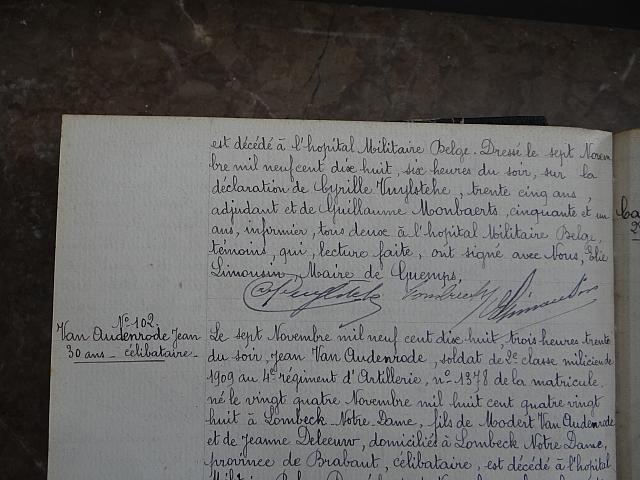 est décédé à l'hopital Militaire Belge. Dressé le sept Novem
bre mil neuf cent dix huit, six heures du soir, sur la
déclaration de Cyrille Vuylsteke, trente cinq ans,
adjudant et de Guillaume Monbaerts, cinquante et un
ans, infirmier, tous deux à l'hopital Militaire Belge,
témoins, qui, lecture faite, ont signé avec Nous, Elie
Limousin, Maire de Guemps.
N° 102
Van Audenrode Jean
30 ans - célibataire -
Le sept Novembre mil neuf cent dix huit, trois heures trente
du soir, Jean Van Audenrode, soldat de 2e classe milicien de
1909 au 4e régiment d'Artillerie, n° 1378 de la matricule.
né le vingt quatre Novembre mil huit cent quatre vingt
huit à Lombeck Notre-Dame, fils de Modert Van Audenrode
et de Jeanne Deleeuw, domiciliés à Lombeck Notre Dame,
province de Brabant, célibataire, est décédé à l'hopital